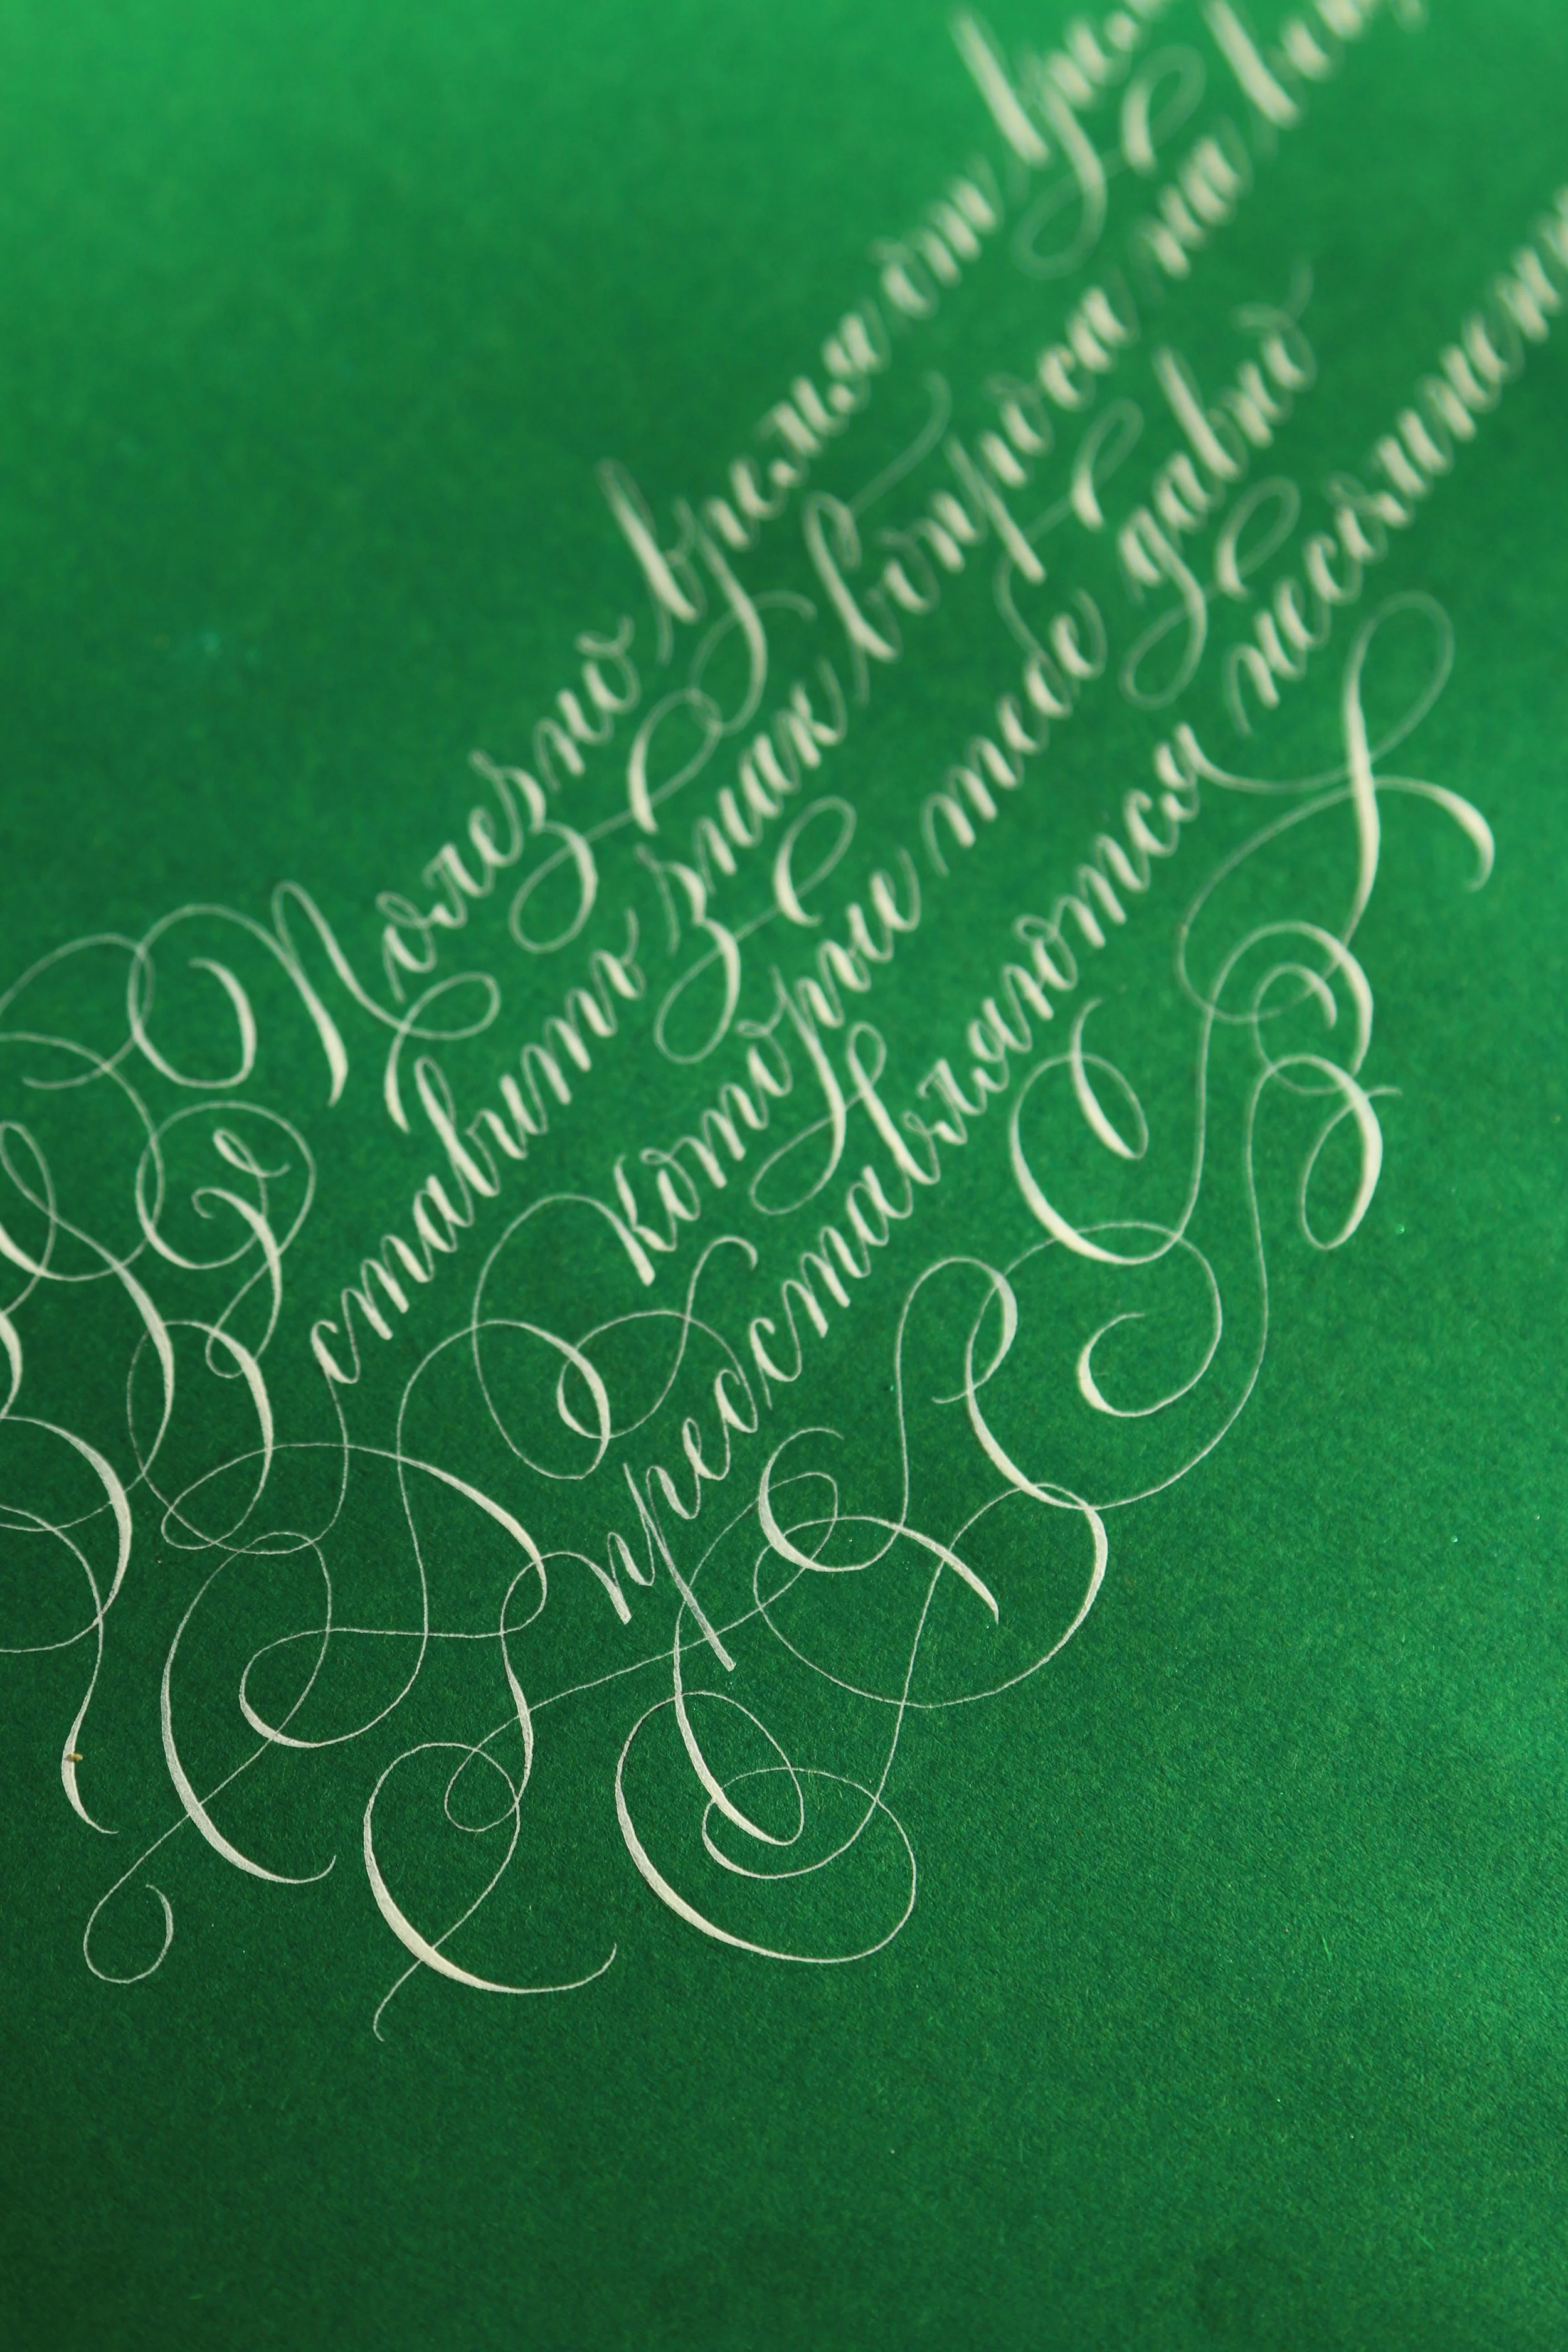 Полезно время от вре
ставить знак вопроса на
которые тебе давно
представляются несомнен